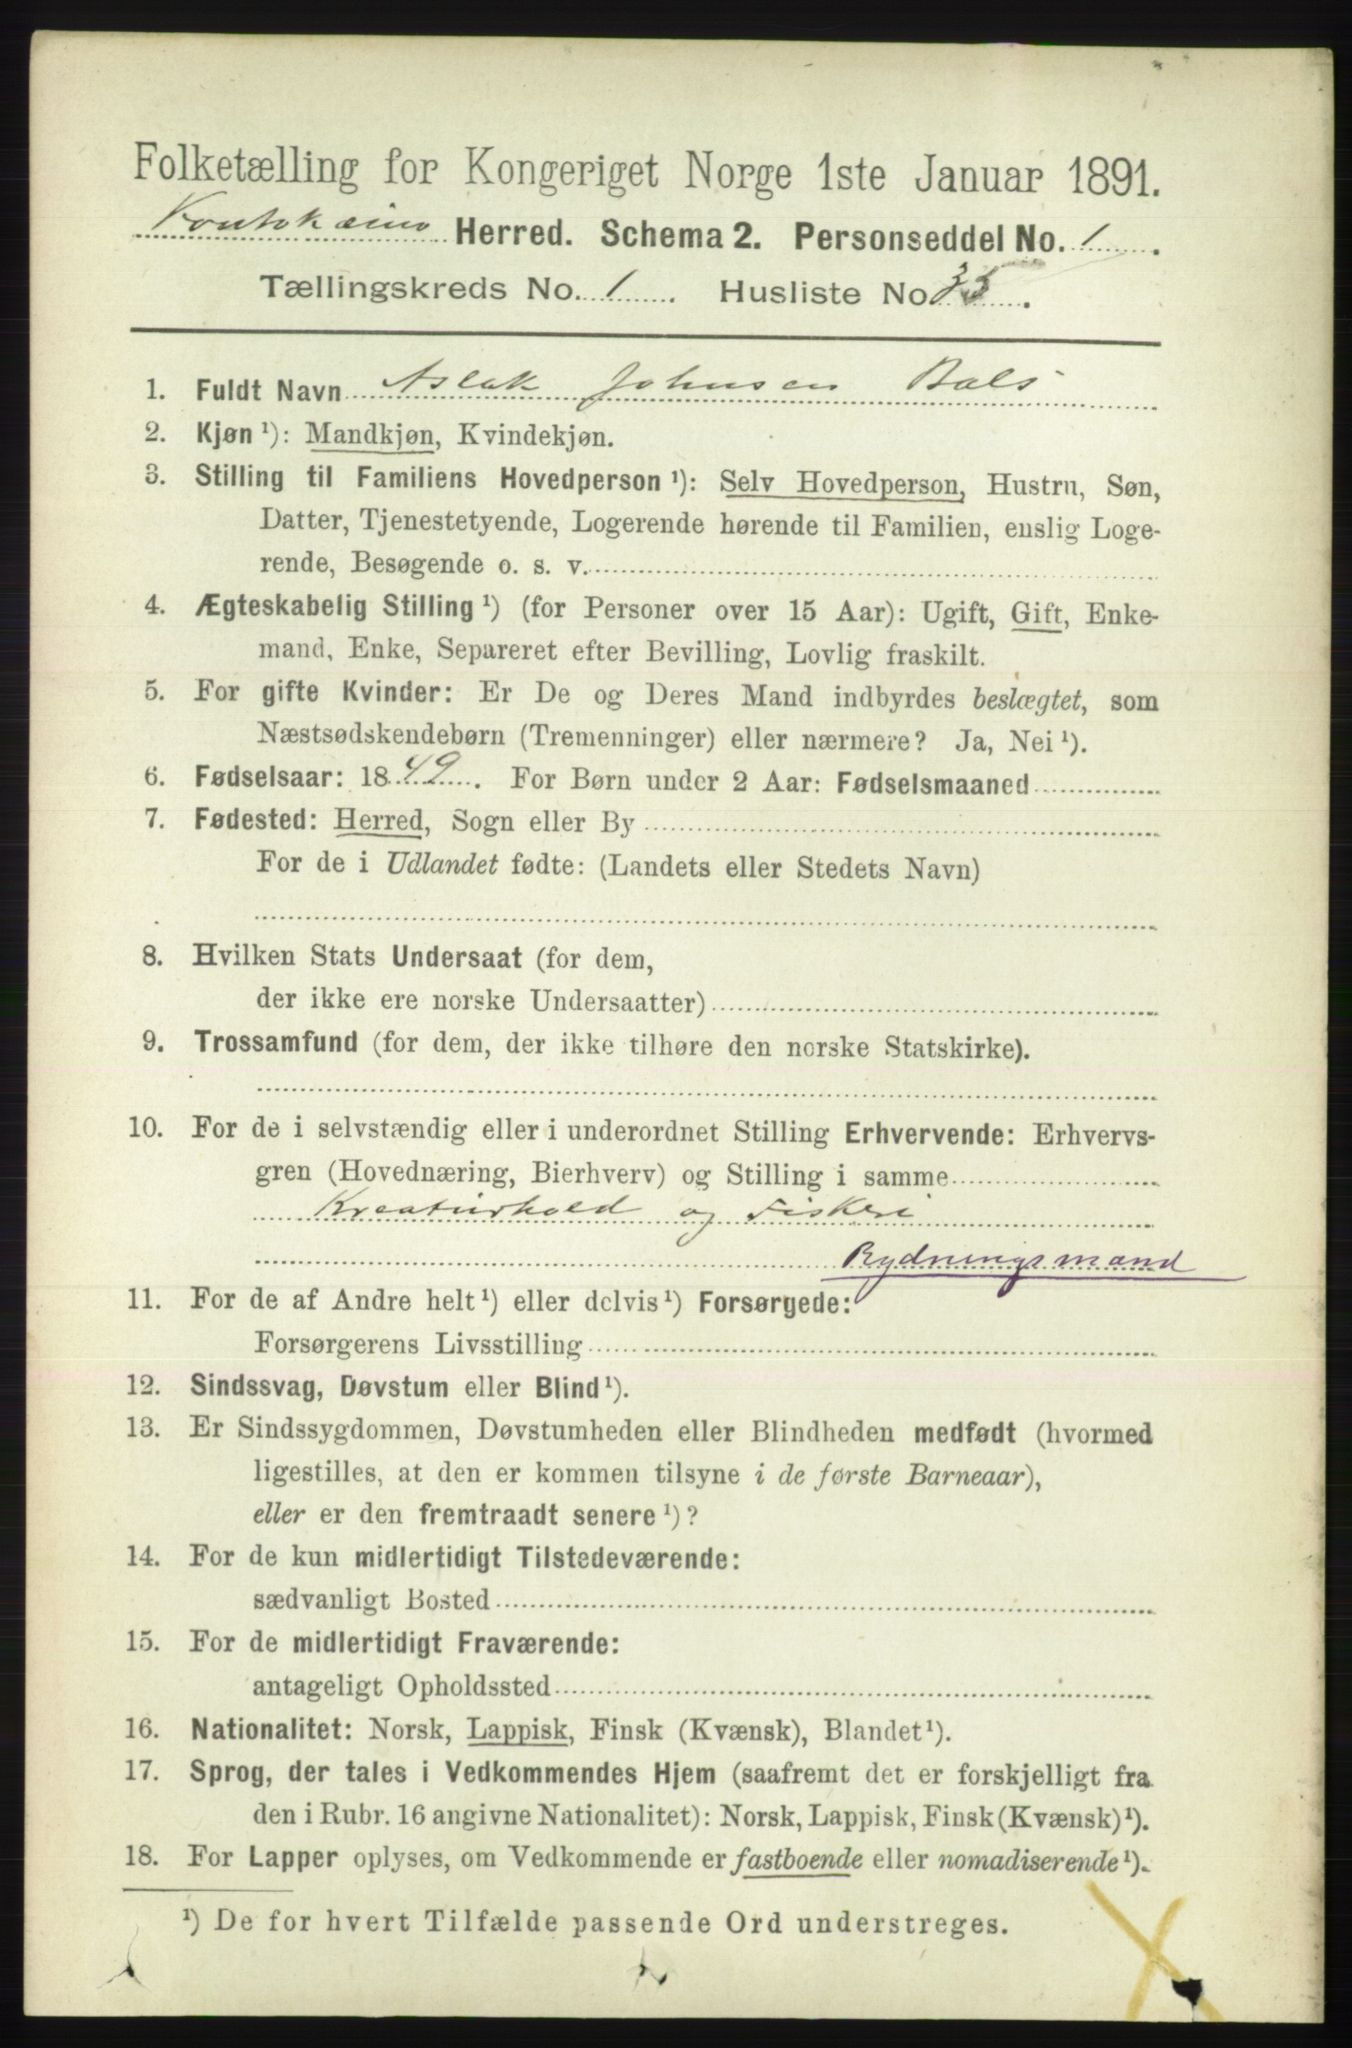 Folketælling for Kongeriget Norge 1ste Januar 1891.
Koutokeino Herred. Schema 2. Personseddel No. 1.
Tællingskreds No. 1. Husliste No 33.
1. Fuldt Navn Aslak Johnsen Bals
2. Kjøn ¹): Mandkjøn, Kvindekjøn.
3. Stilling til Familiens Hovedperson ¹): Selv Hovedperson, Hustru, Søn,
Datter, Tjenestetyende, Logerende hørende til Familien, enslig Loge-
rende, Besøgende o. s. v.
4. Ægteskabelig Stilling ¹) (for Personer over 15 Aar): Ugift, Gift, Enke-
mand, Enke, Separeret efter Bevilling, Lovlig fraskilt.
5. For gifte Kvinder: Er De og Deres Mand indbyrdes beslægtet, som
Næstsødskendebørn (Tremenninger) eller nærmere? Ja, Nei ¹).
6. Fødselsaar: 1849. For Børn under 2 Aar: Fødselsmaaned
7. Fødested: Herred, Sogn eller By
For de i Udlandet fødte: (Landets eller Stedets Navn)
8. Hvilken Stats Undersaat (for dem,
der ikke ere norske Undersaatter)
9. Trossamfund (for dem, der ikke tilhøre den norske Statskirke).
10. For de i selvstændig eller i underordnet Stilling Erhvervende: Erhvervs-
gren (Hovednæring, Bierhverv) og Stilling i samme
Kreaturhold og Fiskeri
Rydningsmand
11. For de af Andre helt ¹) eller delvis ¹) Forsørgede:
Forsørgerens Livsstilling
12. Sindssvag, Døvstum eller Blind ¹).
13. Er Sindssygdommen, Døvstumheden eller Blindheden medfødt (hvormed
ligestilles, at den er kommen tilsyne i de første Barneaar),
eller er den fremtraadt senere ¹)?
14. For de kun midlertidigt Tilstedeværende:
sædvanligt Bosted
15. For de midlertidigt Fraværende:
antageligt Opholdssted
16. Nationalitet: Norsk, Lappisk, Finsk (Kvænsk), Blandet ¹).
17. Sprog, der tales i Vedkommendes Hjem (saafremt det er forskjelligt fra
den i Rubr. 16 angivne Nationalitet): Norsk, Lappisk, Finsk (Kvænsk) ¹).
18. For Lapper oplyses, om Vedkommende er fastboende eller nomadiserende ¹).
¹) De for hvert Tilfælde passende Ord understreges.